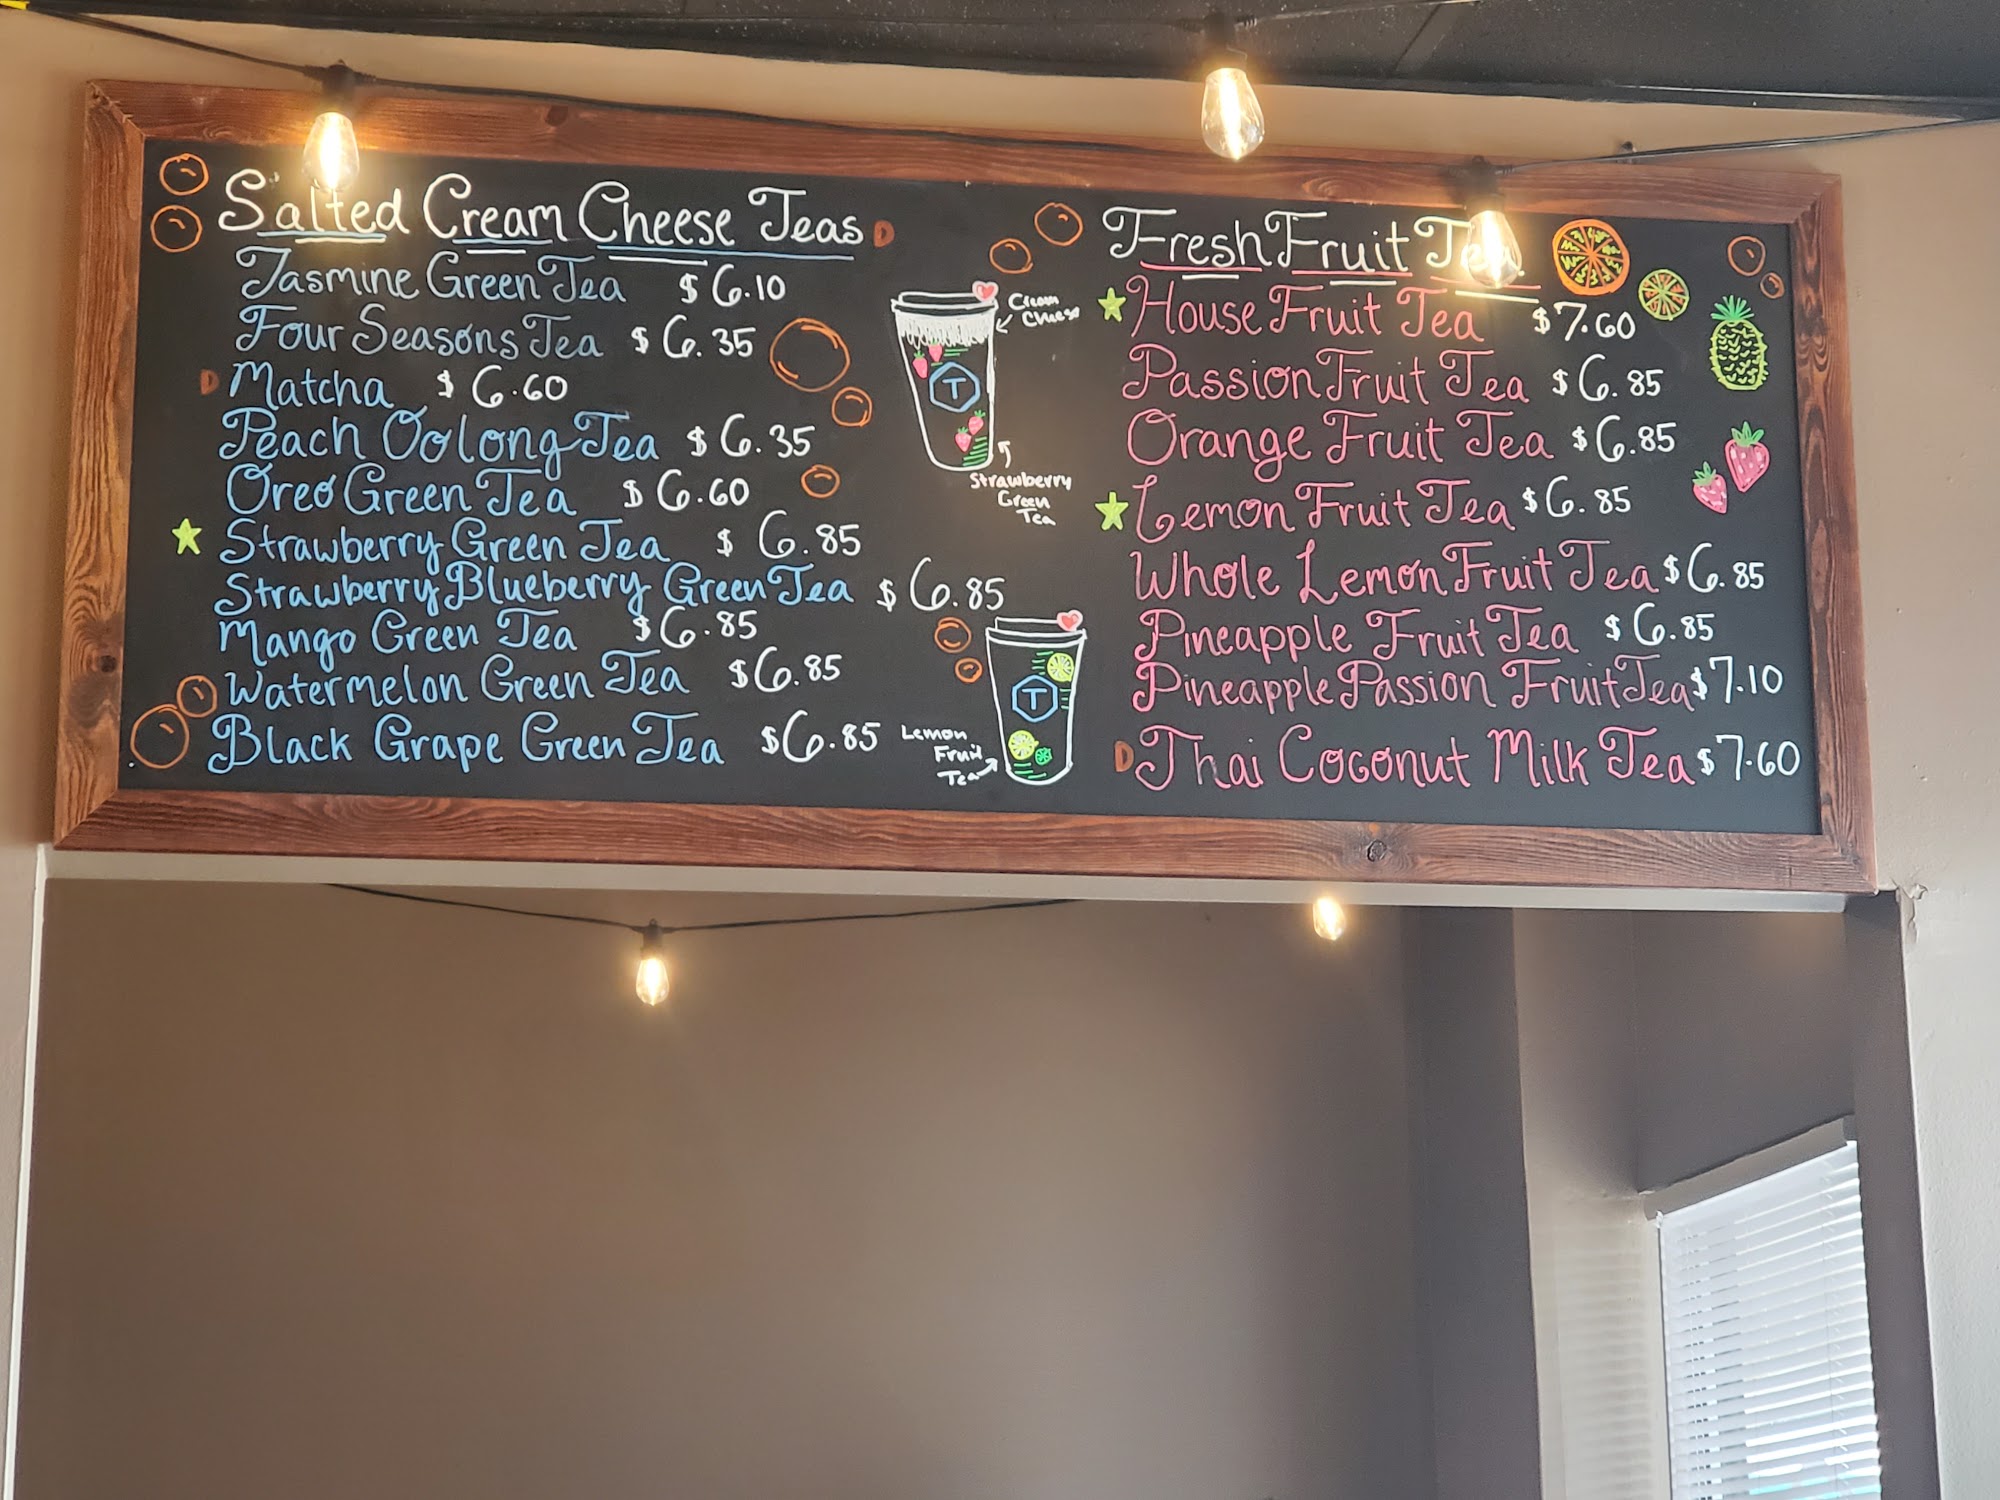 Salted Cream Cheese Teas D
Jasmine Green Tea $6.10
Four Seasons Tea $6.35
D Matcha $6.60
Peach Oolong Tea $6.35
Oreo Green Tea $6.60
Strawberry Green Tea $6.85
Strawberry Blueberry Green Tea $6.85
Mango Green Tea $6.85
Watermelon Green Tea $6.85
Black Grape Green Tea $6.85
Cream
Cheese
T
Strawberry
Green
Tea
T
Lemon
Fruit
Tea
Fresh Fruit Tea
House Fruit Tea $7.60
Passion Fruit Tea $6.85
Orange Fruit Tea $6.85
Lemon Fruit Tea $6.85
Whole Lemon Fruit Tea $6.85
Pineapple Fruit Tea $6.85
Pineapple Passion Fruit Tea $7.10
D Thai Coconut Milk Tea $7.60